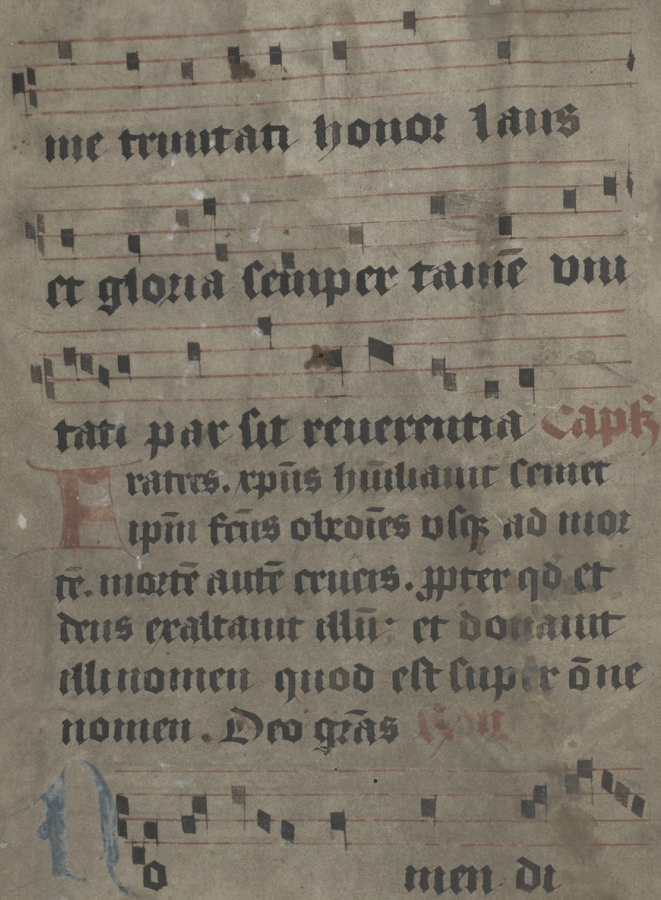 me trinitati honor laus
et gloria semper tamē vni
tati par sit reuerentia Capłꝫ
Fratres. xp̄us hūiliauit semet
ipm̄ fcūs obediēs vsqꝫ ad mor
tē. mortē autē crucis. ꝓpter qd et
deus exaltauit illū: et donauit
illi nomen quod est super ōne
nomen. Deo gr̄as
No men di